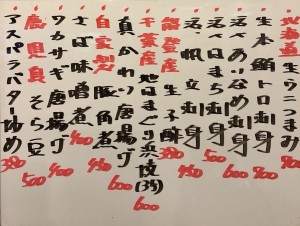 北海道生ウニつまみ 900
生本鮪トロ刺身 900
活〆あいなめ刺身 600
活〆あじ刺身 500
活帆立刺身
能登産生子酢 380
千葉産地はまぐり浜焼(3ヶ) 600
真かれい唐揚げ 600
自家製豚角煮
さば味噌煮 400
ワカサギ唐揚げ 400
鹿児島そら豆 500
アスパラバター炒め 380